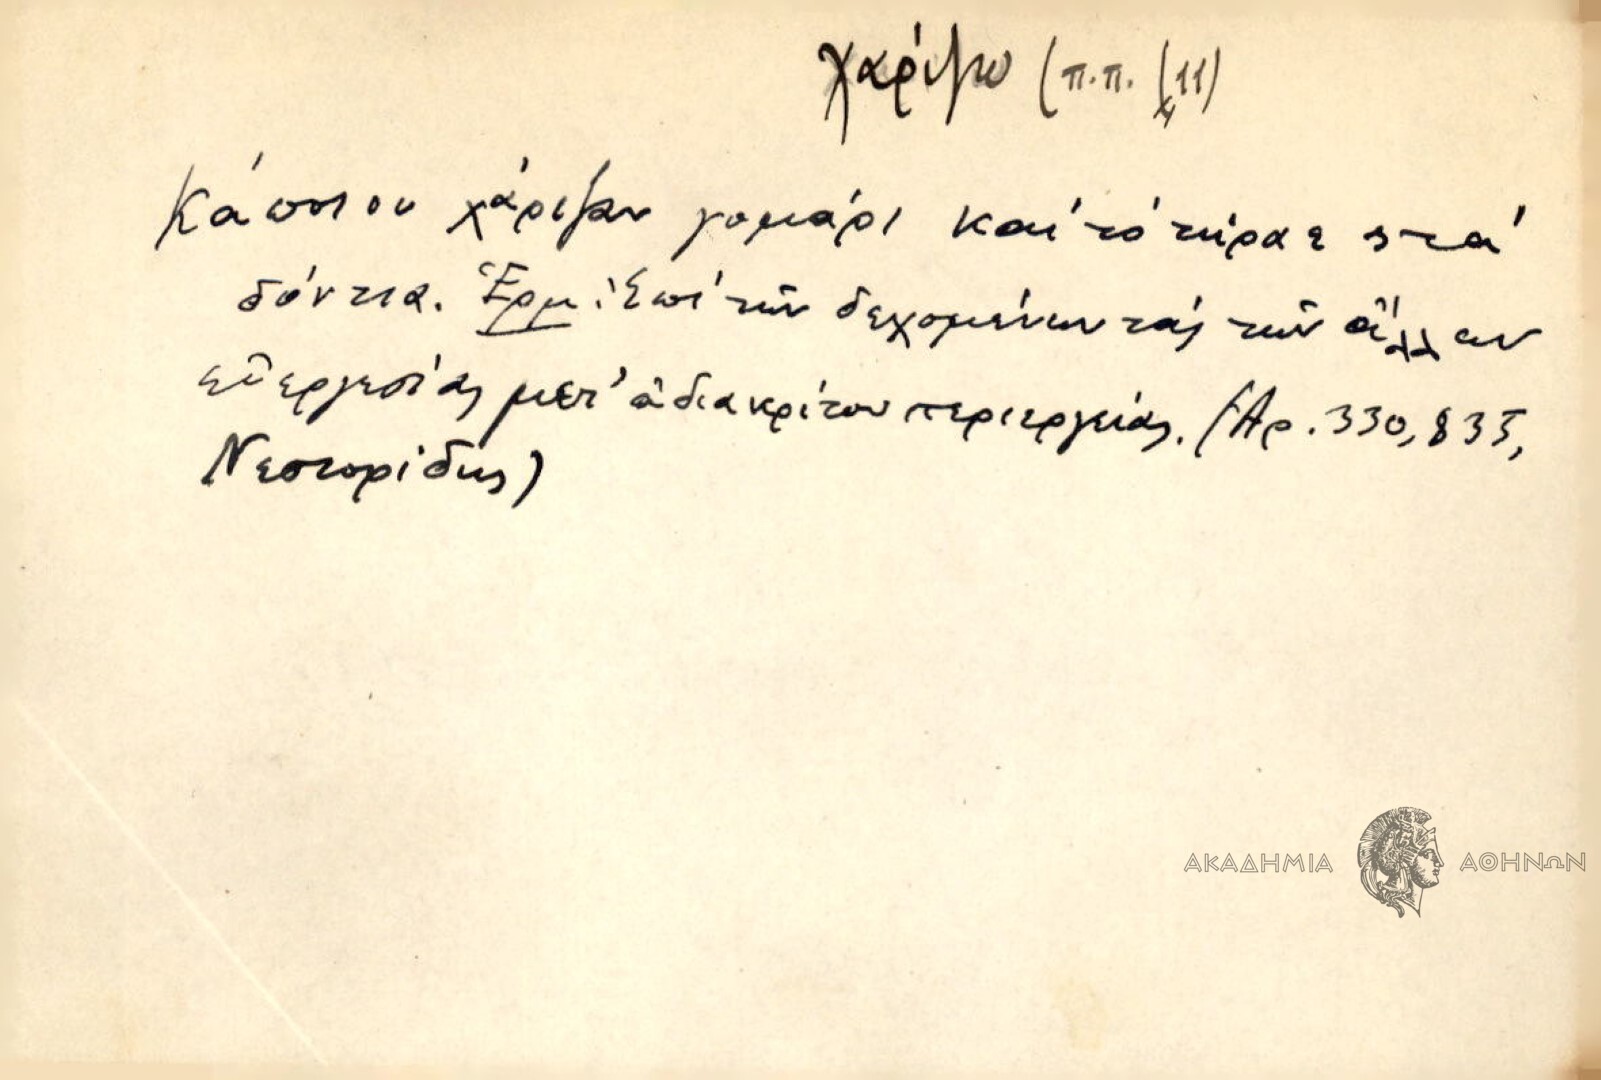 χαρίζω (π.π. 11)
Κάποιου χάριζαν γομάρι καί τό τήραε στά
δόντια. Ἑρμ. Ἐπί τῶν δεχομένων τάς τῶν ἄλλων
εὐεργεσίας μετ' ἀδιακρίτου περιεργείας. (Ἀρ. 330, 835,
Νεστορίδης)
ΑΚΑΔΗΜΙΑ ΑΘΗΝΩΝ